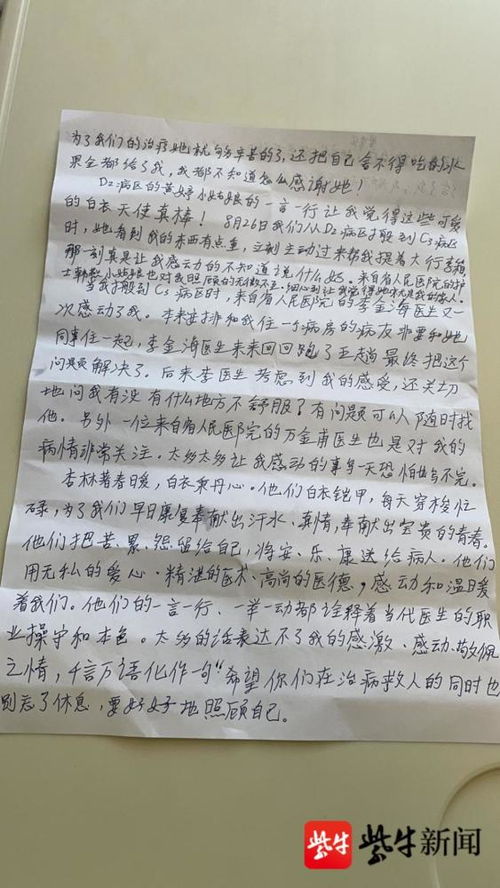 为了我们的治疗她就够辛苦的了，还把自己舍不得吃的水
果全都给了我，我都不知道怎么感谢她！
D2病区的黄婷小姑娘的一言一行让我觉得这些可爱
的白衣天使真棒！8月26日我们从D2病区搬到C3病区
时，她看到我的东西有点重，立刻主动过来帮我提着大行李箱
那一刻真是让我感动的不知道说什么好。来自省人民医院的护
士韩 小姑娘也对我照顾的无微不至，细心到让我觉得她就是我的家人。
当我搬到C3病区时，来自省人民医院的李金海医生又一
次感动了我。本来安排和我住一个病房的病友非要和她
同事住一起，李金海医生来来回回跑了三趟最终把这个
问题解决了。后来李医生考虑到我的感受，还关切
地问我有没有什么地方不舒服？有问题可以随时找
他。另外一位来自省人民医院的万金甫医生也是对我的
病情非常关注。太多太多让我感动的事每天恐怕写不完。
杏林著春日暖，白衣秉丹心。他们白衣铠甲，每天穿梭忙
碌，为了我们早日康复奉献出汗水、真情，奉献出宝贵的青春。
他们把苦、累、怨留给自己，将安、乐、康送给病人。他们
用无私的爱心、精湛的医术、高尚的医德，感动和温暖
着我们。他们的一言一行、一举一动都诠释着当代医生的职
业操守和本色。太多的话表达不了我的感激、感动、敬佩
之情，千言万语化作一句“希望你们在治病救人的同时也
别忘了休息，要好好地照顾自己。
紫牛 紫牛新闻